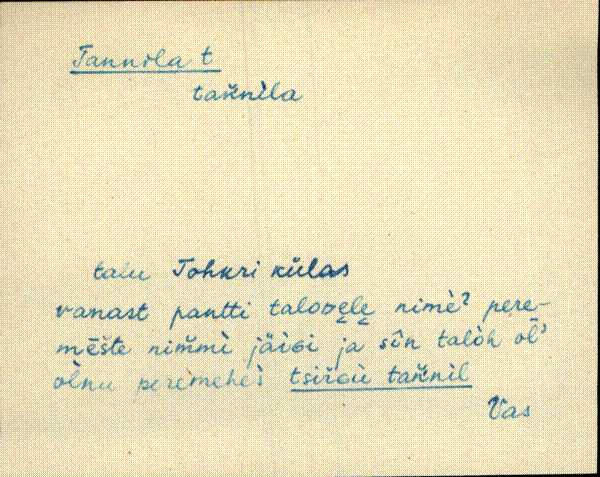 Tannila t
tan̆nìla
talu Tohkri külas
vanast pantti taloᴅẹlẹ nimèˀ pere-
mēšte nim̆mì jäiɢi ja sîn talòh ol̄’
òlnu peremehès tsir̆ɢù tan̆nìl
Vas